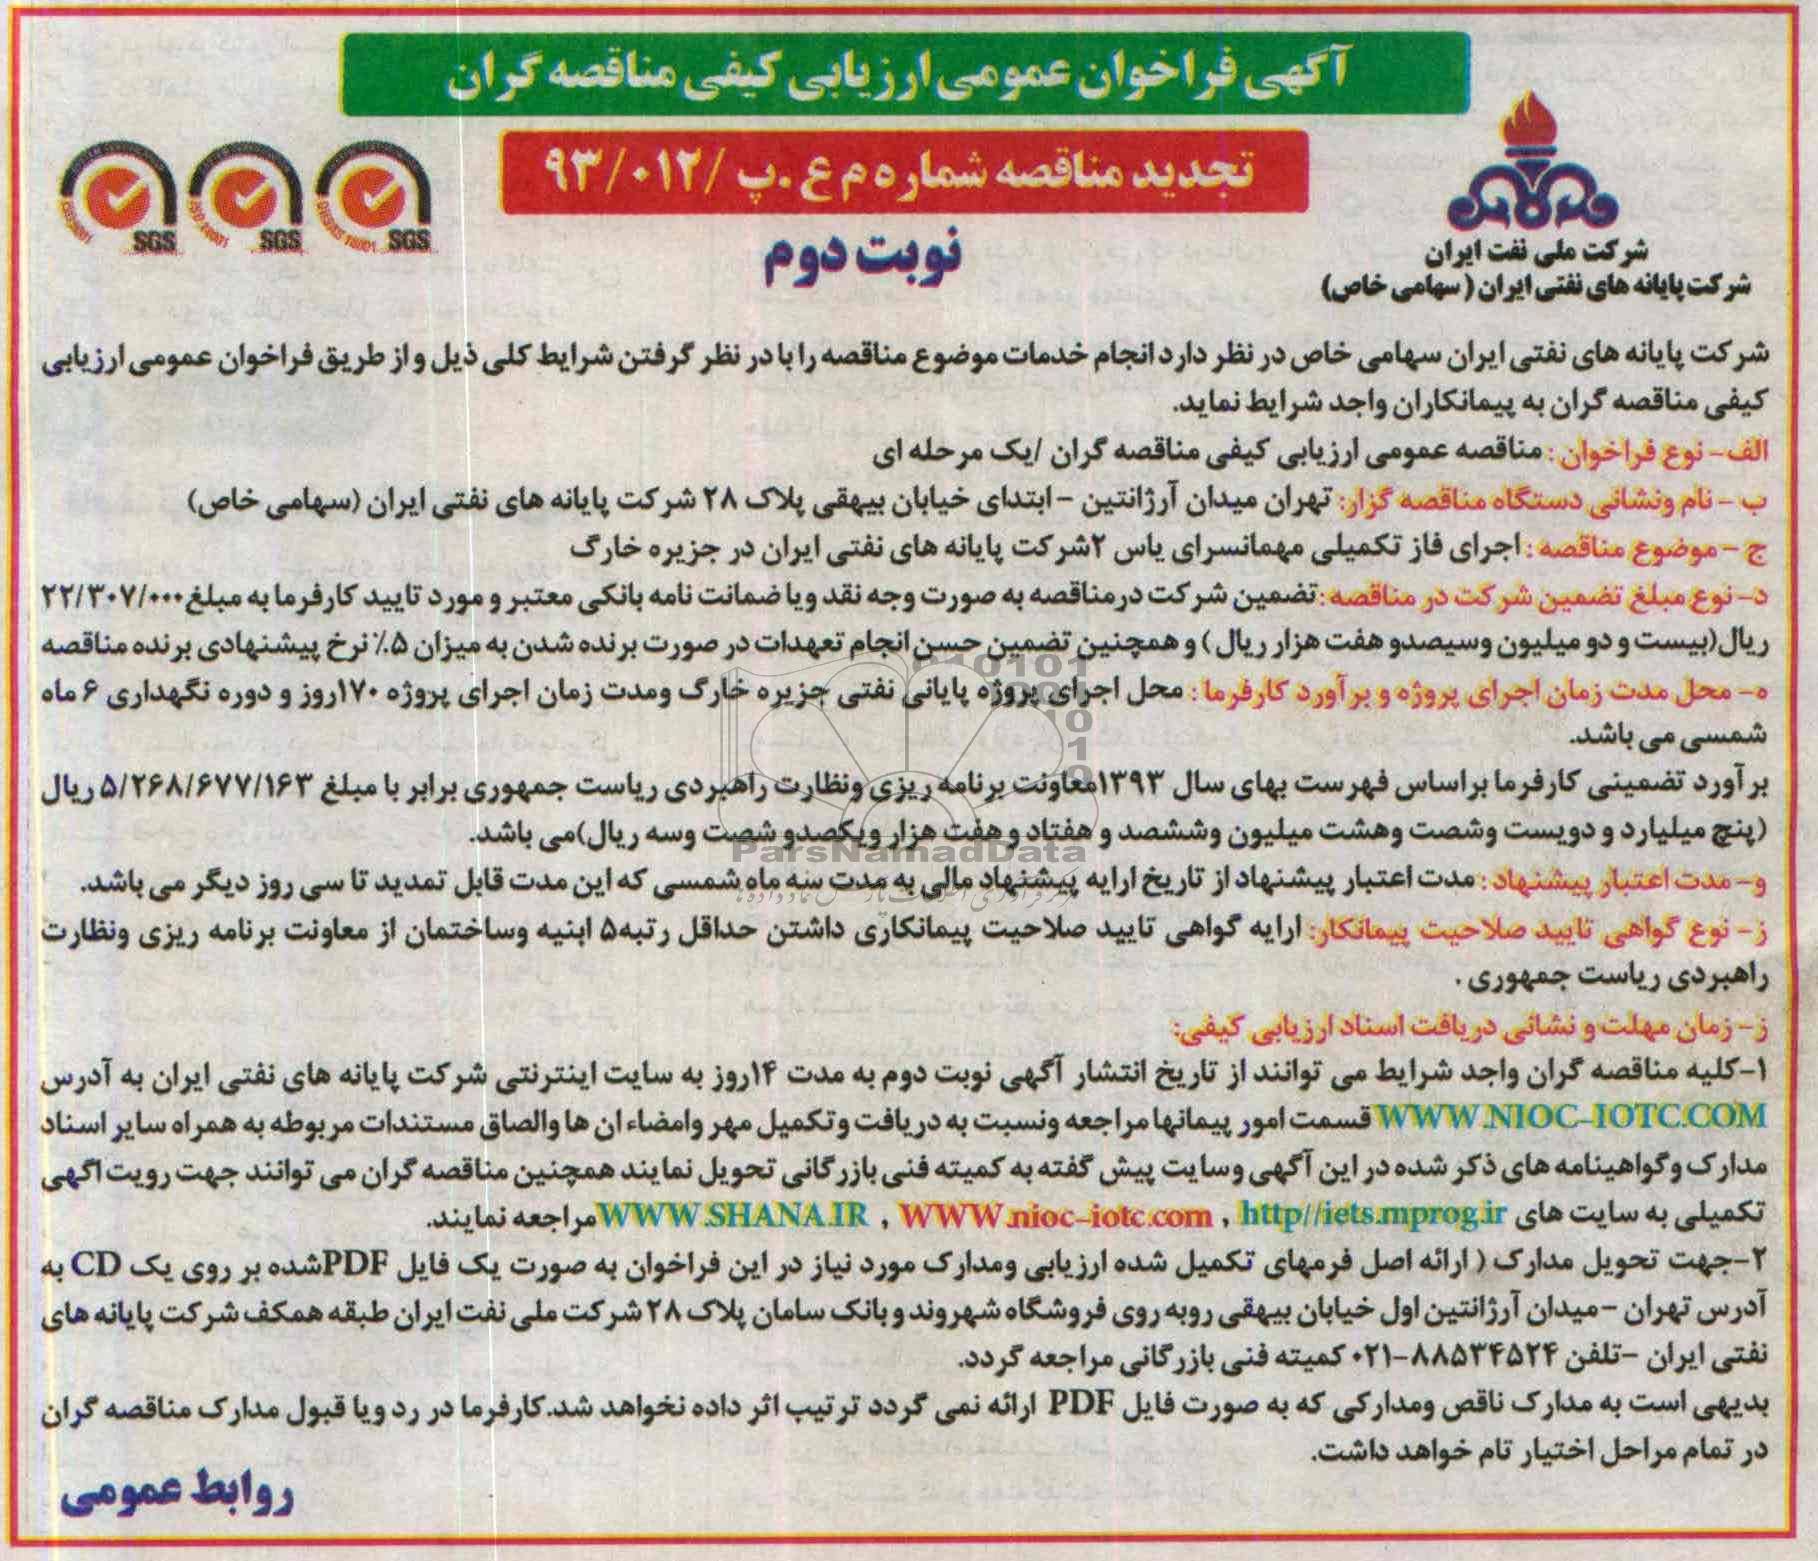 آگهی فراخوان عمومی ارزیابی کیفی مناقصه گران
تجدید مناقصه شماره م ع .پ /۹۳/۰۱۲
نوبت دوم
شرکت ملی نفت ایران
شرکت پایانه های نفتی ایران (سهامی خاص)
SGS
SGS
SGS
شرکت پایانه های نفتی ایران سهامی خاص در نظر دارد انجام خدمات موضوع مناقصه را با در نظر گرفتن شرایط کلی ذیل و از طریق فراخوان عمومی ارزیابی
کیفی مناقصه گران به پیمانکاران واجد شرایط نماید.
الف- نوع فراخوان : مناقصه عمومی ارزیابی کیفی مناقصه گران /یک مرحله ای
ب - نام ونشانی دستگاه مناقصه گزار: تهران میدان آرژانتین -ابتدای خیابان بیهقی پلاک ۲۸ شرکت پایانه های نفتی ایران (سهامی خاص)
ج - موضوع مناقصه : اجرای فاز تکمیلی مهمانسرای یاس ۲شرکت پایانه های نفتی ایران در جزیره خارگ
د- نوع مبلغ تضمین شرکت در مناقصه :تضمین شرکت درمناقصه به صورت وجه نقد ویا ضمانت نامه بانکی معتبر و مورد تایید کارفرما به مبلغ ۲۲/۳۰۷/۰۰۰
ریال(بیست و دو میلیون وسیصدو هفت هزار ریال ) و همچنین تضمین حسن انجام تعهدات در صورت برنده شدن به میزان ۵٪ نرخ پیشنهادی برنده مناقصه
ه- محل مدت زمان اجرای پروژه و برآورد کارفرما : محل اجرای پروژه پایانی نفتی جزیره خارگ ومدت زمان اجرای پروژه ۱۷۰روز و دوره نگهداری ۶ ماه
شمسی می باشد.
برآورد تضمینی کارفرما براساس فهرست بهای سال ۱۳۹۳معاونت برنامه ریزی ونظارت راهبردی ریاست جمهوری برابر با مبلغ ۵/۲۶۸/۶۷۷/۱۶۳ ریال
(پنج میلیارد و دویست وشصت وهشت میلیون وششصد و هفتاد و هفت هزار ویکصدو شصت وسه ریال)می باشد.
ParsNamadData
و- مدت اعتبار پیشنهاد : مدت اعتبار پیشنهاد از تاریخ ارایه پیشنهاد مالی به مدت سه ماه شمسی که این مدت قابل تمدید تا سی روز دیگر می باشد.
ز- نوع گواهی تایید صلاحیت پیمانکار: ارایه گواهی تایید صلاحیت پیمانکاری داشتن حداقل رتبه۵ ابنیه وساختمان از معاونت برنامه ریزی ونظارت
راهبردی ریاست جمهوری .
ز- زمان مهلت و نشانی دریافت اسناد ارزیابی کیفی:
۱-کلیه مناقصه گران واجد شرایط می توانند از تاریخ انتشار آگهی نوبت دوم به مدت ۱۴روز به سایت اینترنتی شرکت پایانه های نفتی ایران به آدرس
WWW.NIOC-IOTC.COM قسمت امور پیمانها مراجعه ونسبت به دریافت وتکمیل مهر وامضاء ان ها والصاق مستندات مربوطه به همراه سایر اسناد
مدارک وگواهینامه های ذکر شده در این آگهی وسایت پیش گفته به کمیته فنی بازرگانی تحویل نمایند همچنین مناقصه گران می توانند جهت رویت اگهی
تکمیلی به سایت های http//iets.mprog.ir , WWW.nioc-iotc.com , WWW.SHANA.IR مراجعه نمایند.
۲-جهت تحویل مدارک ( ارائه اصل فرمهای تکمیل شده ارزیابی ومدارک مورد نیاز در این فراخوان به صورت یک فایل PDFشده بر روی یک CD به
آدرس تهران -میدان آرژانتین اول خیابان بیهقی روبه روی فروشگاه شهروند و بانک سامان پلاک ۲۸ شرکت ملی نفت ایران طبقه همکف شرکت پایانه های
نفتی ایران -تلفن ۸۸۵۳۴۵۲۴-۰۲۱ کمیته فنی بازرگانی مراجعه گردد.
بدیهی است به مدارک ناقص ومدارکی که به صورت فایل PDF ارائه نمی گردد ترتیب اثر داده نخواهد شد.کارفرما در رد ویا قبول مدارک مناقصه گران
در تمام مراحل اختیار تام خواهد داشت.
روابط عمومی